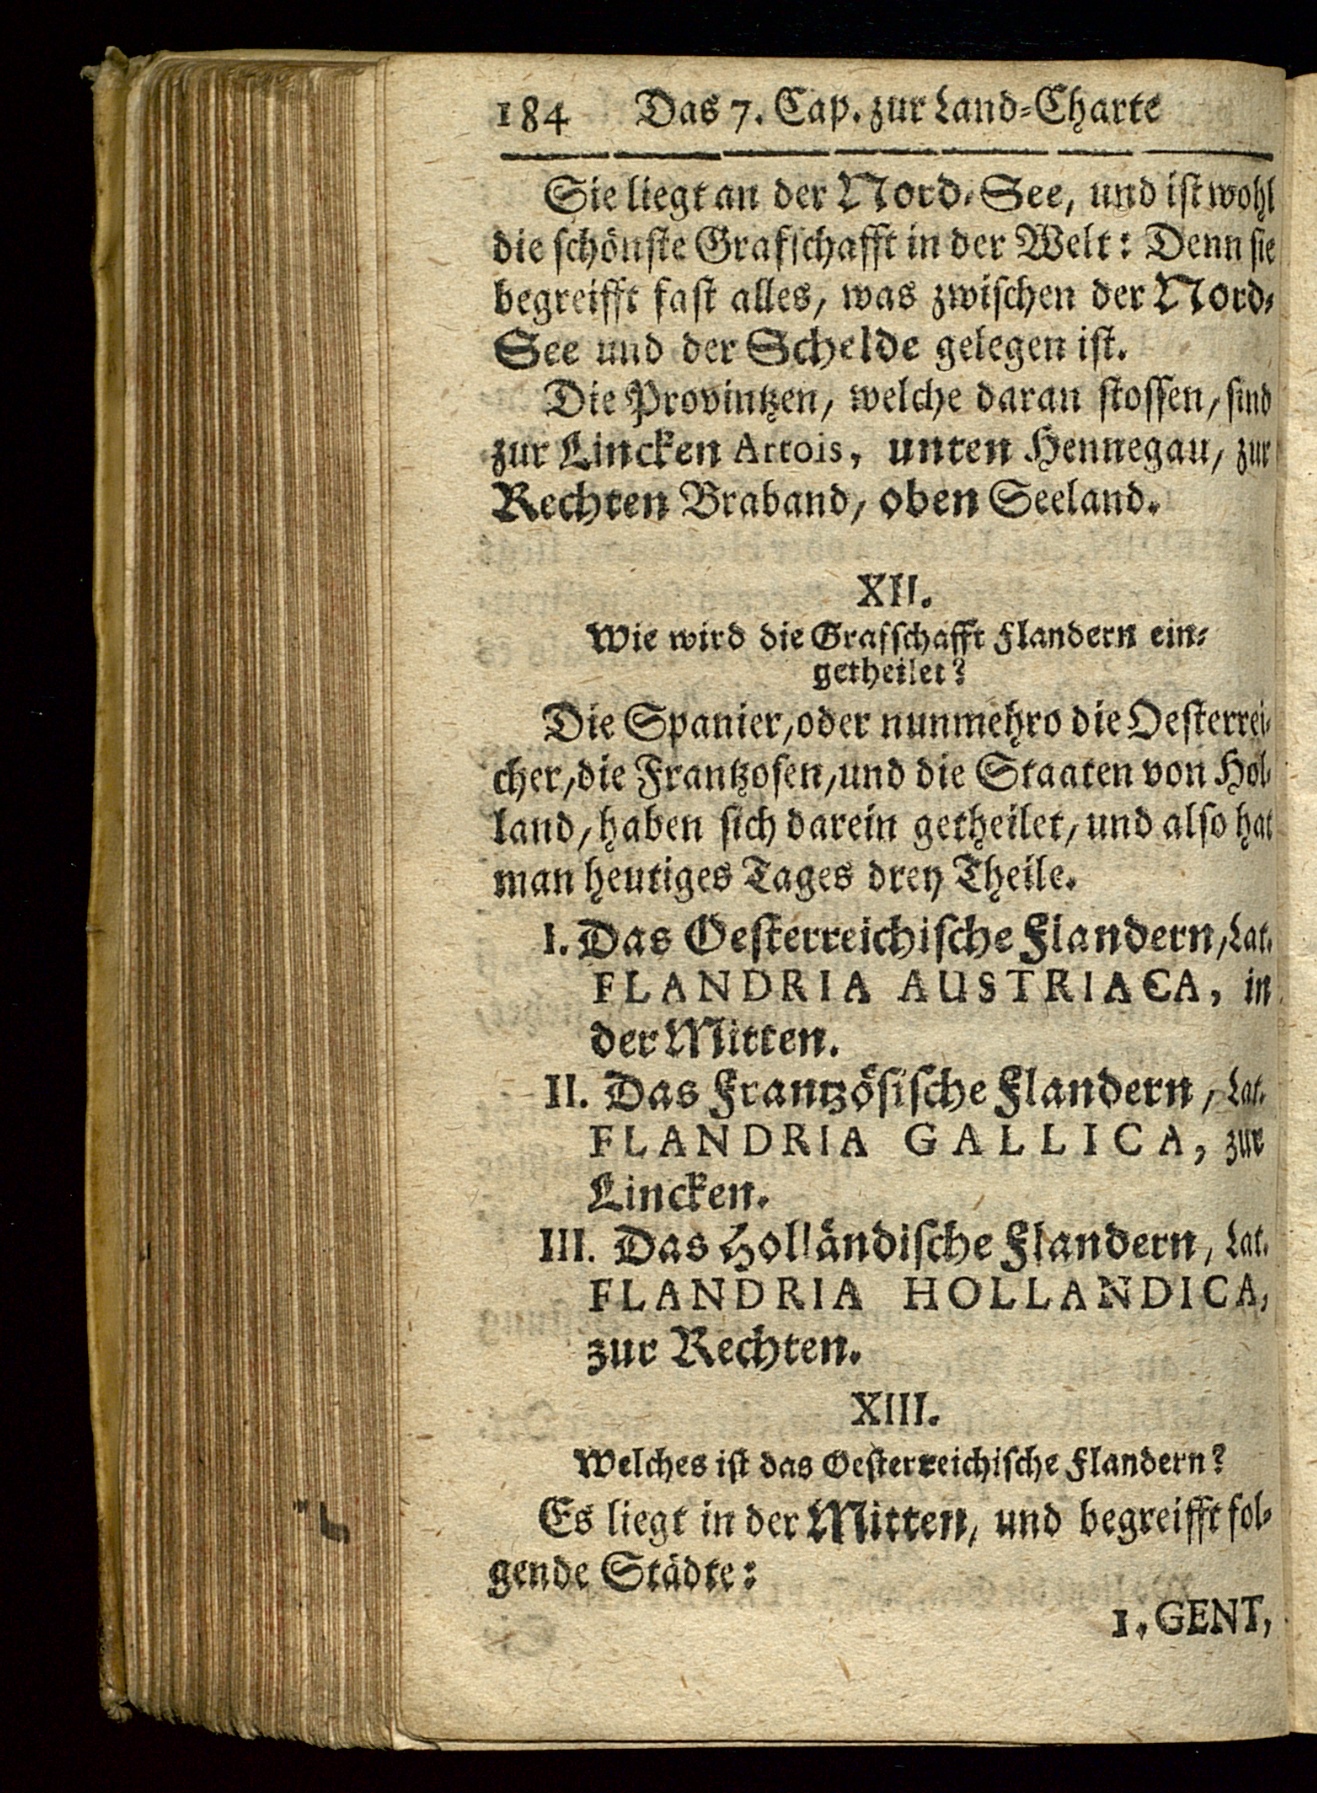 184 Das 7. Cap. zur Land-Charte
Sie liegt an der Nord-See, und ist wohl
die schönste Grafschafft in der Welt: Denn sie
begreifft fast alles, was zwischen der Nord-
See und der Schelde gelegen ist.
Die Provintzen, welche daran stossen, sind
zur Lincken Artois, unten Hennegau, zur
Rechten Braband, oben Seeland.
XII.
Wie wird die Grafschafft Flandern ein-
getheilet?
Die Spanier, oder nunmehro die Oesterrei-
cher, die Frantzosen, und die Staaten von Hol-
land, haben sich darein getheilet, und also hat
man heutiges Tages drey Theile.
I. Das Oesterreichische Flandern, Lat.
FLANDRIA AUSTRIACA, in
der Mitten.
II. Das Frantzösische Flandern, Lat.
FLANDRIA GALLICA, zur
Lincken.
III. Das Holländische Flandern, Lat.
FLANDRIA HOLLANDICA,
zur Rechten.
XIII.
Welches ist das Oesterreichische Flandern?
Es liegt in der Mitten, und begreifft fol-
gende Städte:
1. GENT,